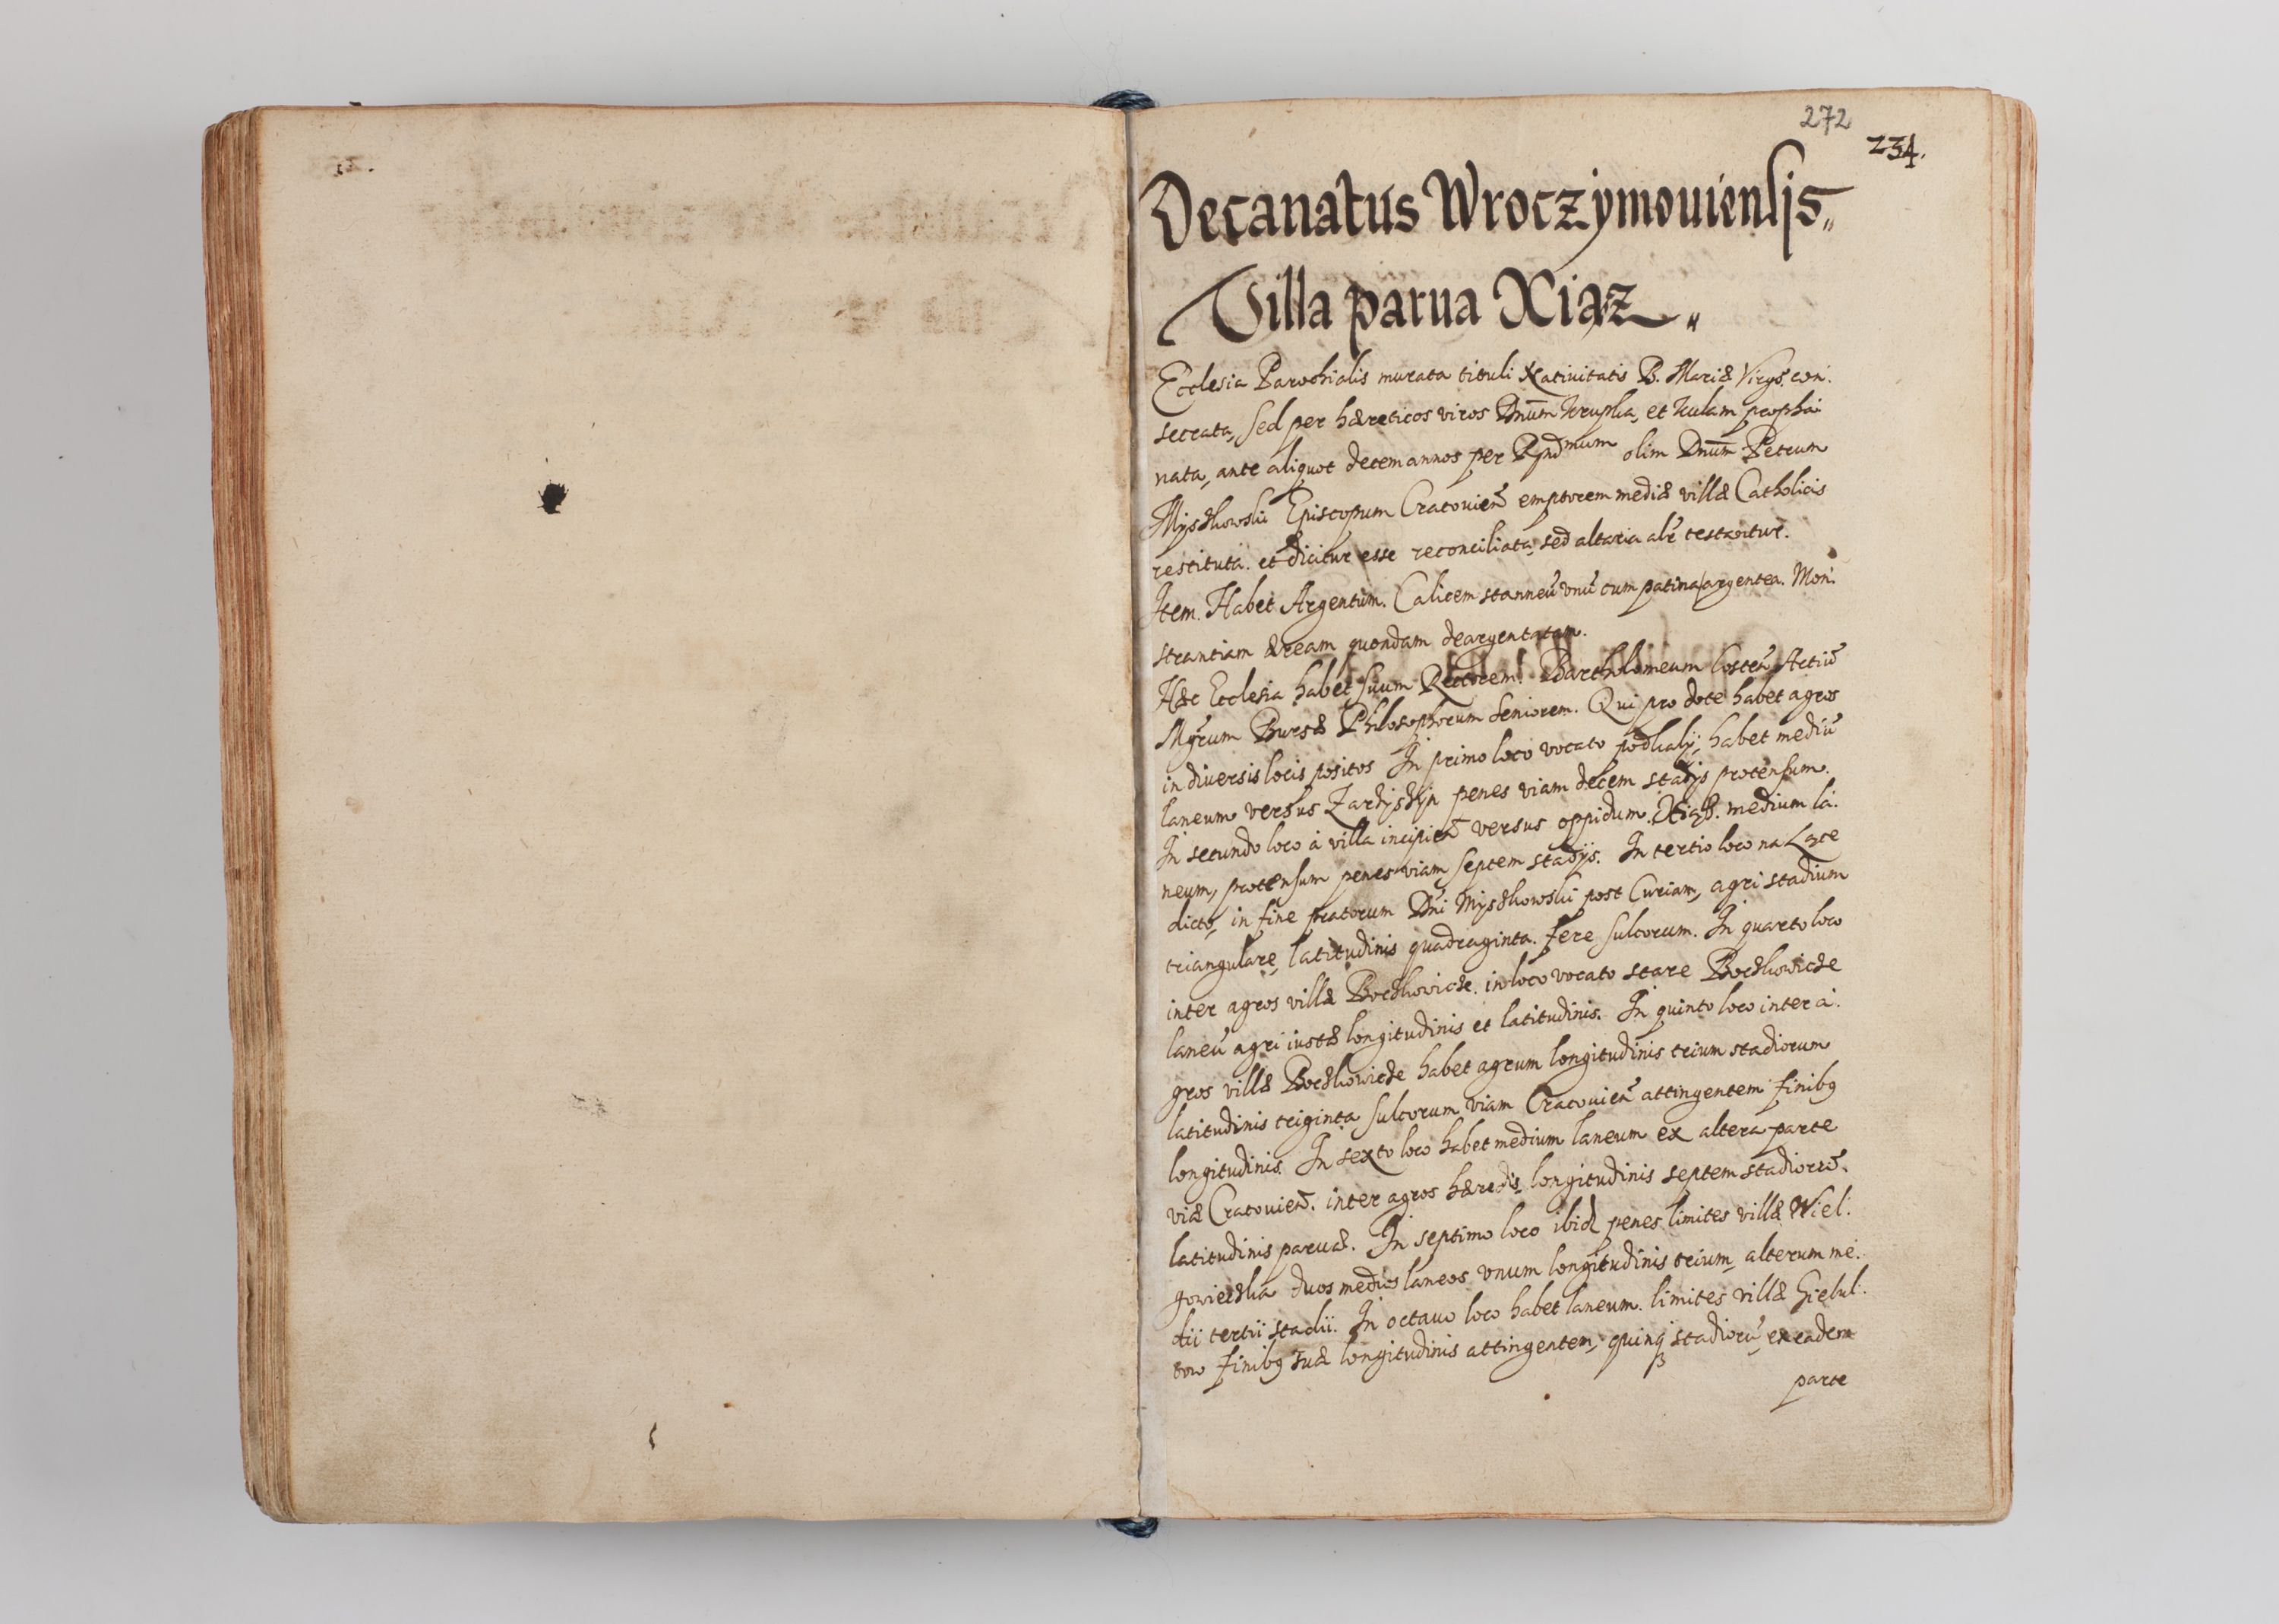 272
234.
Decanatus Wroczymouiensis
Villa parua Xiąz
Ecclesia Parochialis murata tituli Natiuitatis B. Mariæ Virgs. con:
secrata, sed per hæreticos viros Dnum et prophá:
nata, ante aliquot decem annos per Rndmum olim Dnum Petrum
Myszkowski Episcopum Cracouien̄ emptorem mediæ villæ Catholicis
restituta. et dicitur esse reconciliata, sed altaria testantur.
Item. Habet Argentum. Calicem stanneū vnū cum patina argentea. Mon:
strantiam æream quondam deargentatam.
Hæc Ecclesia habet suum Rectorem. Bartholomeum Artiū
Mgrum Bursæ Philosophorum Seniorem. Qui pro dote habet agros
in diuersis locis positos In primo loco vocato habet mediū
laneum versus penes viam decem stadijs protensum.
In secundo loco à villa incipien̄ versus oppidum Xiąż. medium la:
neum, protensum penes viam septem stadijs. In tertio loco na Łące
dicto, in fine pratorum Dni Myszkowski post Curiam, agri stadium
triangulare, latitudinis quadraginta fere sulcorum. In quarto loco
inter agros villæ Boczkowicze. in loco vocato stare Boczkowicze
laneū agri iustæ longitudinis et latitudinis. In quinto loco inter a:
gros villæ Boczkowicze habet agrum longitudinis trium stadiorum
latitudinis triginta sulcorum viam Cracouien̄ attingentem finibq
longitudinis. In sexto loco habet medium laneum ex altera parte
viæ Cracouien̄. inter agros hæredis, longitudinis septem stadiorū.
latitudinis paruæ. In septimo loco ibid penes limites villæ Wiel:
duos medios laneos vnum longitudinis trium, alterum me:
dii tertii stadii. In octauo loco habet laneum. limites villæ Giebul:
tow finibq suæ longitudinis attingentem, quinq stadiorū, ex eadem
parte